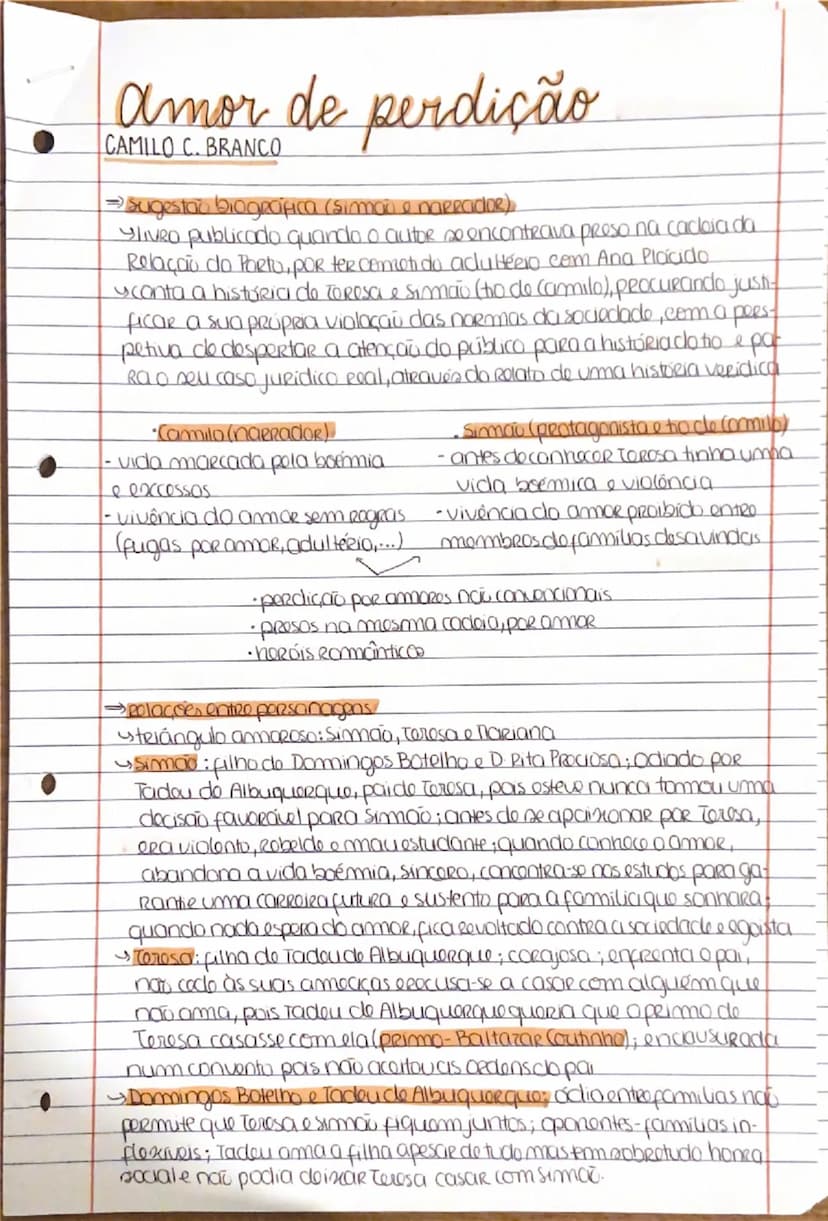 amor de perdição
CAMILO C. BRANCO
⇒ sugestão biográfica (Simão e narrador)
↳ livro publicado quando o autor se encontrava preso na cadeia da
Relação do Porto, por ter cometido adultério com Ana Plácido
↳ conta a história de Teresa e Simão (tio de Camilo), procurando justi-
ficar a sua própria violação das normas da sociedade, com a pers-
petiva de despertar a atenção do público para a história do tio e pa-
ra o seu caso jurídico real, através do relato de uma história verídica
· Camilo (narrador)
- vida marcada pela boémia
e excessos
- vivência do amor sem regras
(fugas por amor, adultério,...)
. Simão (protagonista e tio de Camilo)
- antes de conhecer Teresa tinha uma
vida boémica e violência
- vivência do amor proibido entre
membros de famílias desavindas
· perdição por amores não convencionais
· presos na mesma cadeia, por amor
· heróis românticos
⇒ relações entre personagens
↳ triângulo amoroso: Simão, Teresa e Mariana
↳ Simão: filho de Domingos Botelho e D. Rita Preciosa; odiado por
Tadeu de Albuquerque, pai de Teresa, pois esteve nunca tomou uma
decisão favorável para Simão; antes de se apaixonar por Teresa,
era violento, rebelde e mau estudante; quando conhece o amor,
abandona a vida boémia, sincero, concentra-se nos estudos para ga-
rantir uma carreira futura e sustento para a família que sonhara;
quando nada espera do amor, fica revoltado contra a sociedade e egoísta
↳ Teresa: filha de Tadeu de Albuquerque; corajosa; enfrenta o pai,
não cede às suas ameaças e recusa-se a casar com alguém que
não ama, pois Tadeu de Albuquerque queria que o primo de
Teresa casasse com ela (primo - Baltazar Coutinho); enclausurada
num convento pois não aceitou as ordens do pai
↳ Domingos Botelho e Tadeu de Albuquerque: ódio entre famílias não
permite que Teresa e Simão fiquem juntos; oponentes - famílias in-
flexíveis; Tadeu ama a filha apesar de tudo mas tem sobretudo honra
social e não podia deixar Teresa casar com Simão.